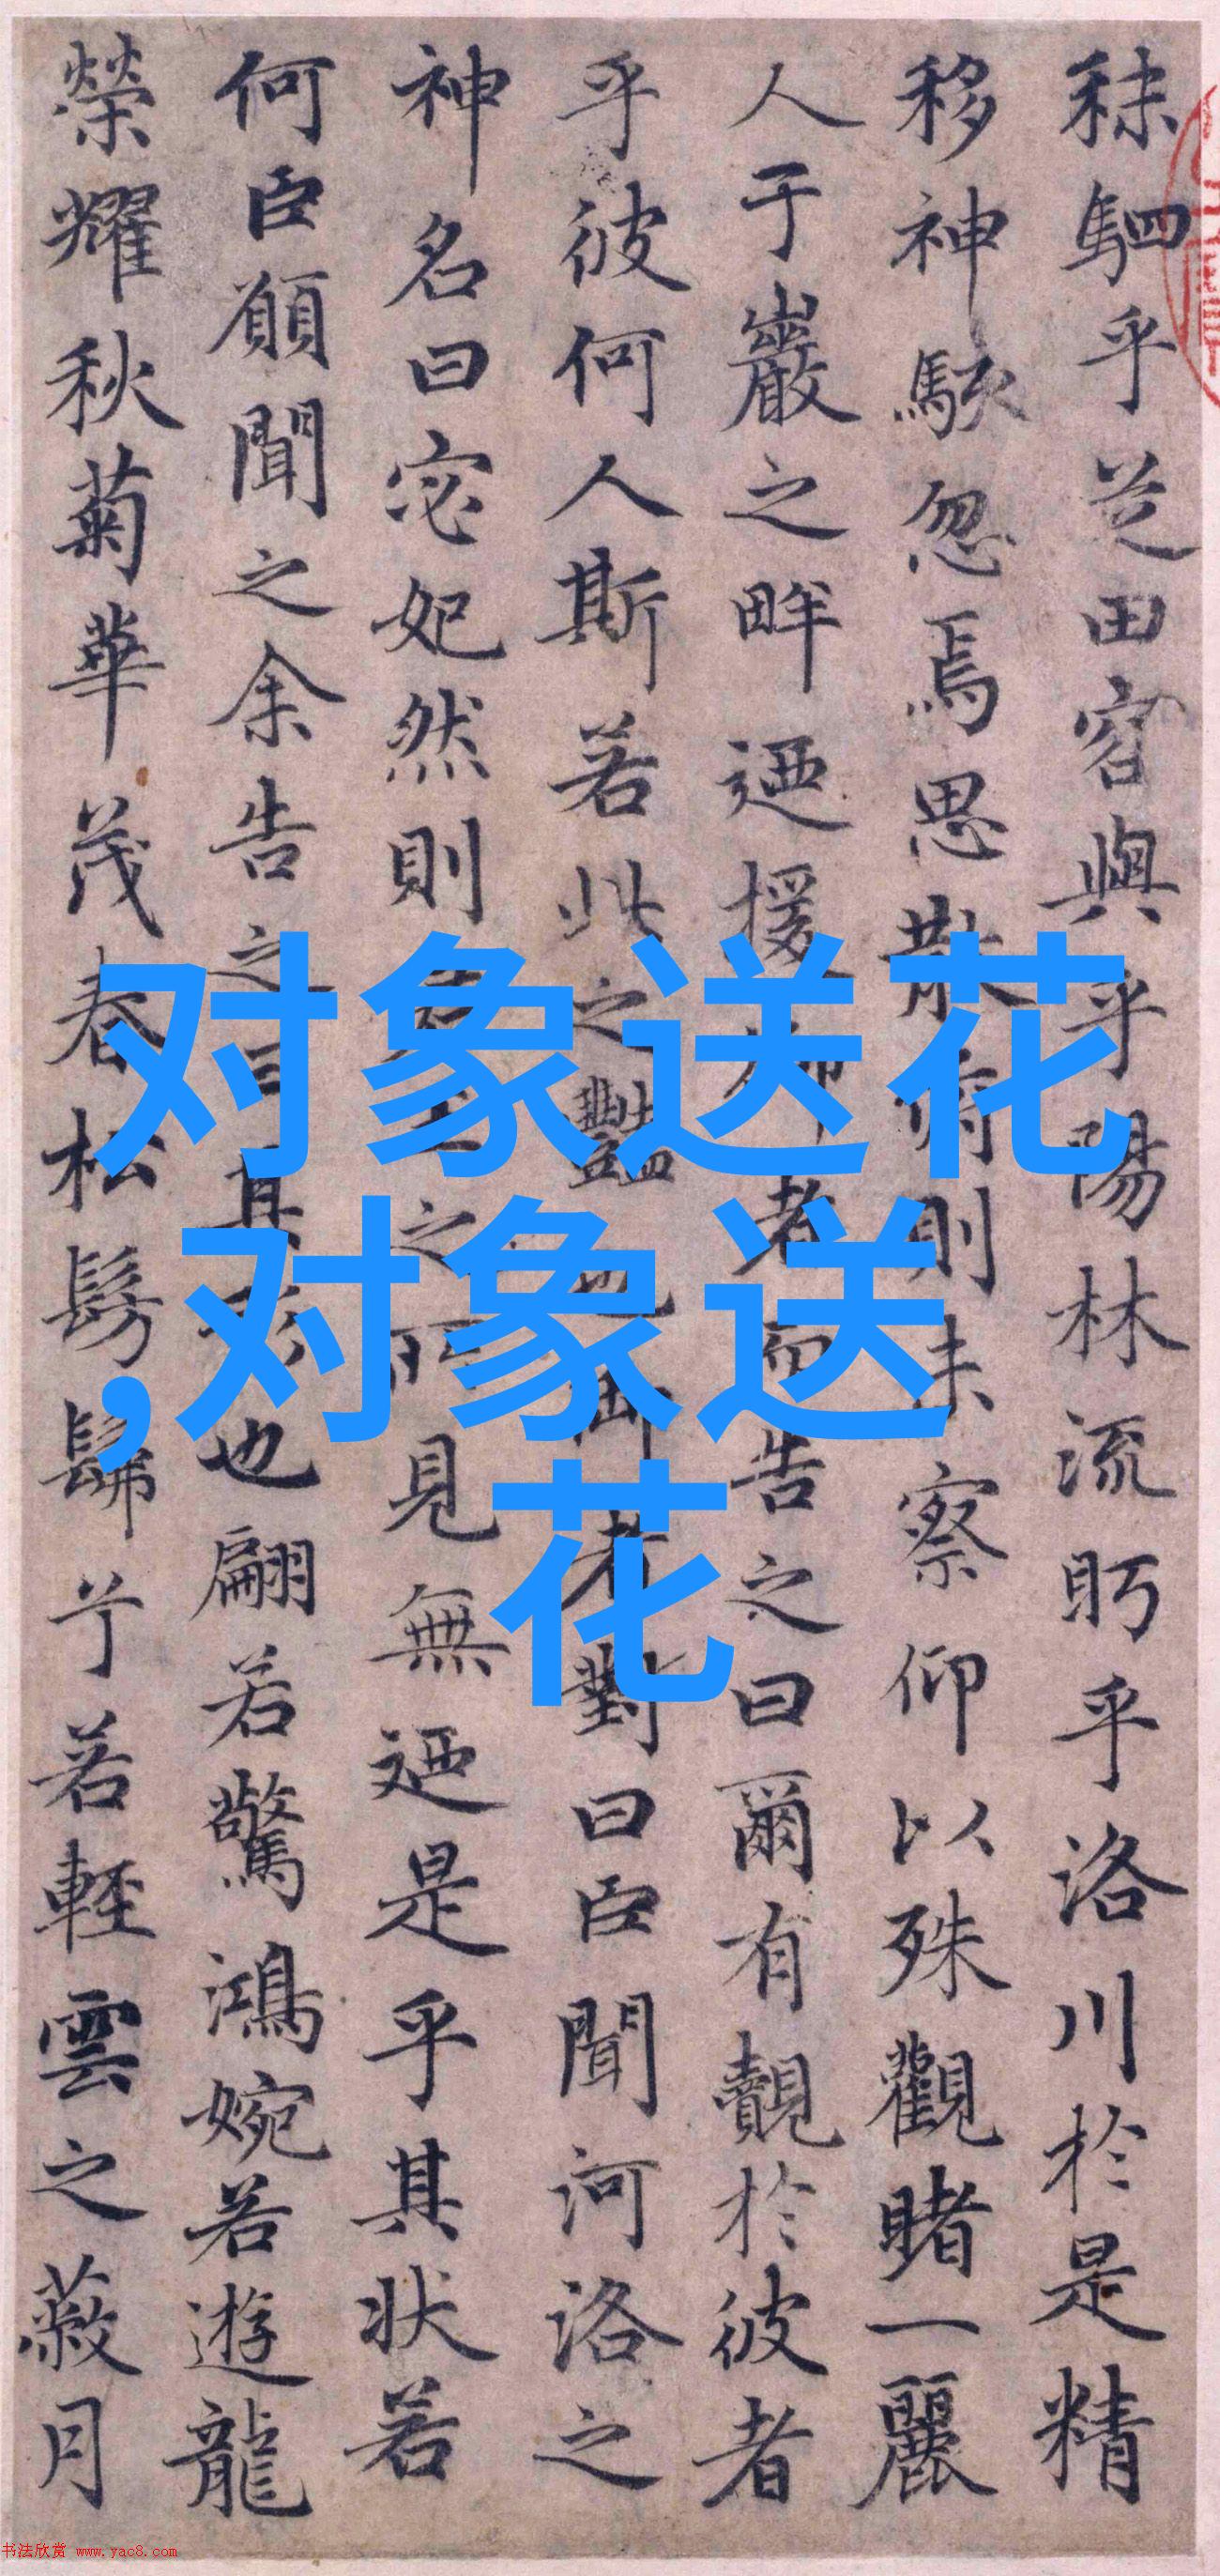 秣駟乎芝田容與乎陽林流眄乎洛川於是精
移神駭忽焉思散俯則未察仰以殊觀睹一麗
人于巖之畔迺援御者而告之曰爾有覿於彼者
乎彼何人斯若此之豔也御者對曰臣聞河洛之
神名曰宓妃然則君王之所見無迺是乎其状若
何臣願聞之余告之曰其形也翩若驚鴻婉若遊龍
榮耀秋菊華茂春松髣髴兮若輕雲之蔽月
对象送花
,对象送
花
书法欣赏 www.yac8.com